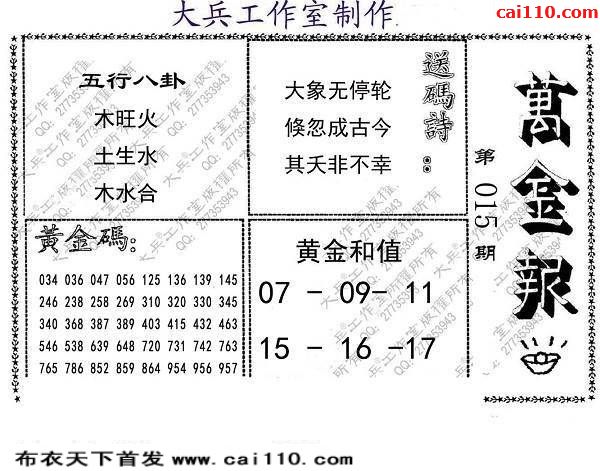 大兵工作室制作
cai110.com
五行八卦
木旺火
土生水
木水合
大象无停轮
倏忽成古今
其夭非不幸
送碼詩：
第015期
萬金報
黃金碼：
034 036 047 056 125 136 139 145
246 238 258 269 310 320 330 345
340 368 387 389 403 415 432 463
546 538 639 648 720 731 742 763
765 786 852 859 864 954 956 957
黄金和值
07 - 09- 11
15 - 16 -17
大兵®工作室版權所有
QQ: 277353943
布衣天下首发 www.cai110.com